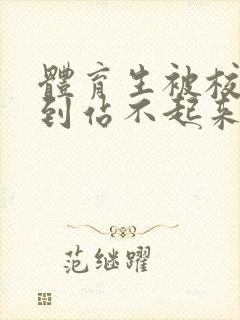 體育生被校
到估不起来
范继躍